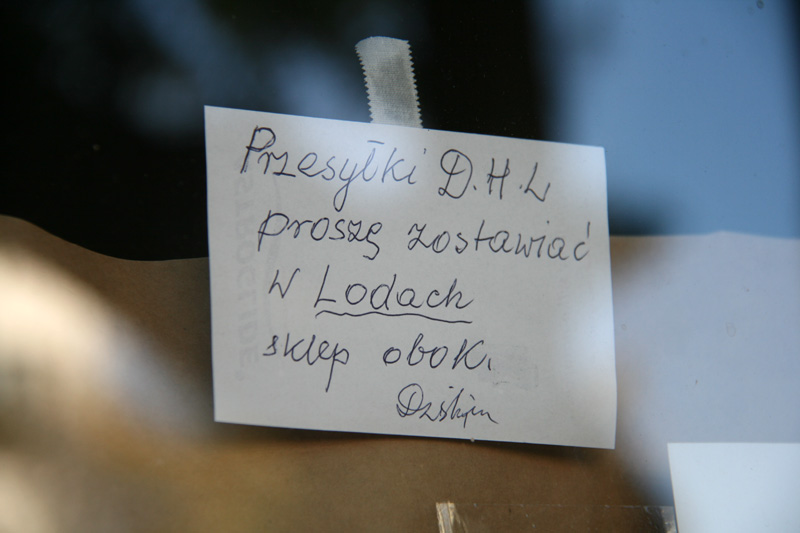 Przesyłki D.H.L
proszę zostawiać
w Lodach
sklep obok.